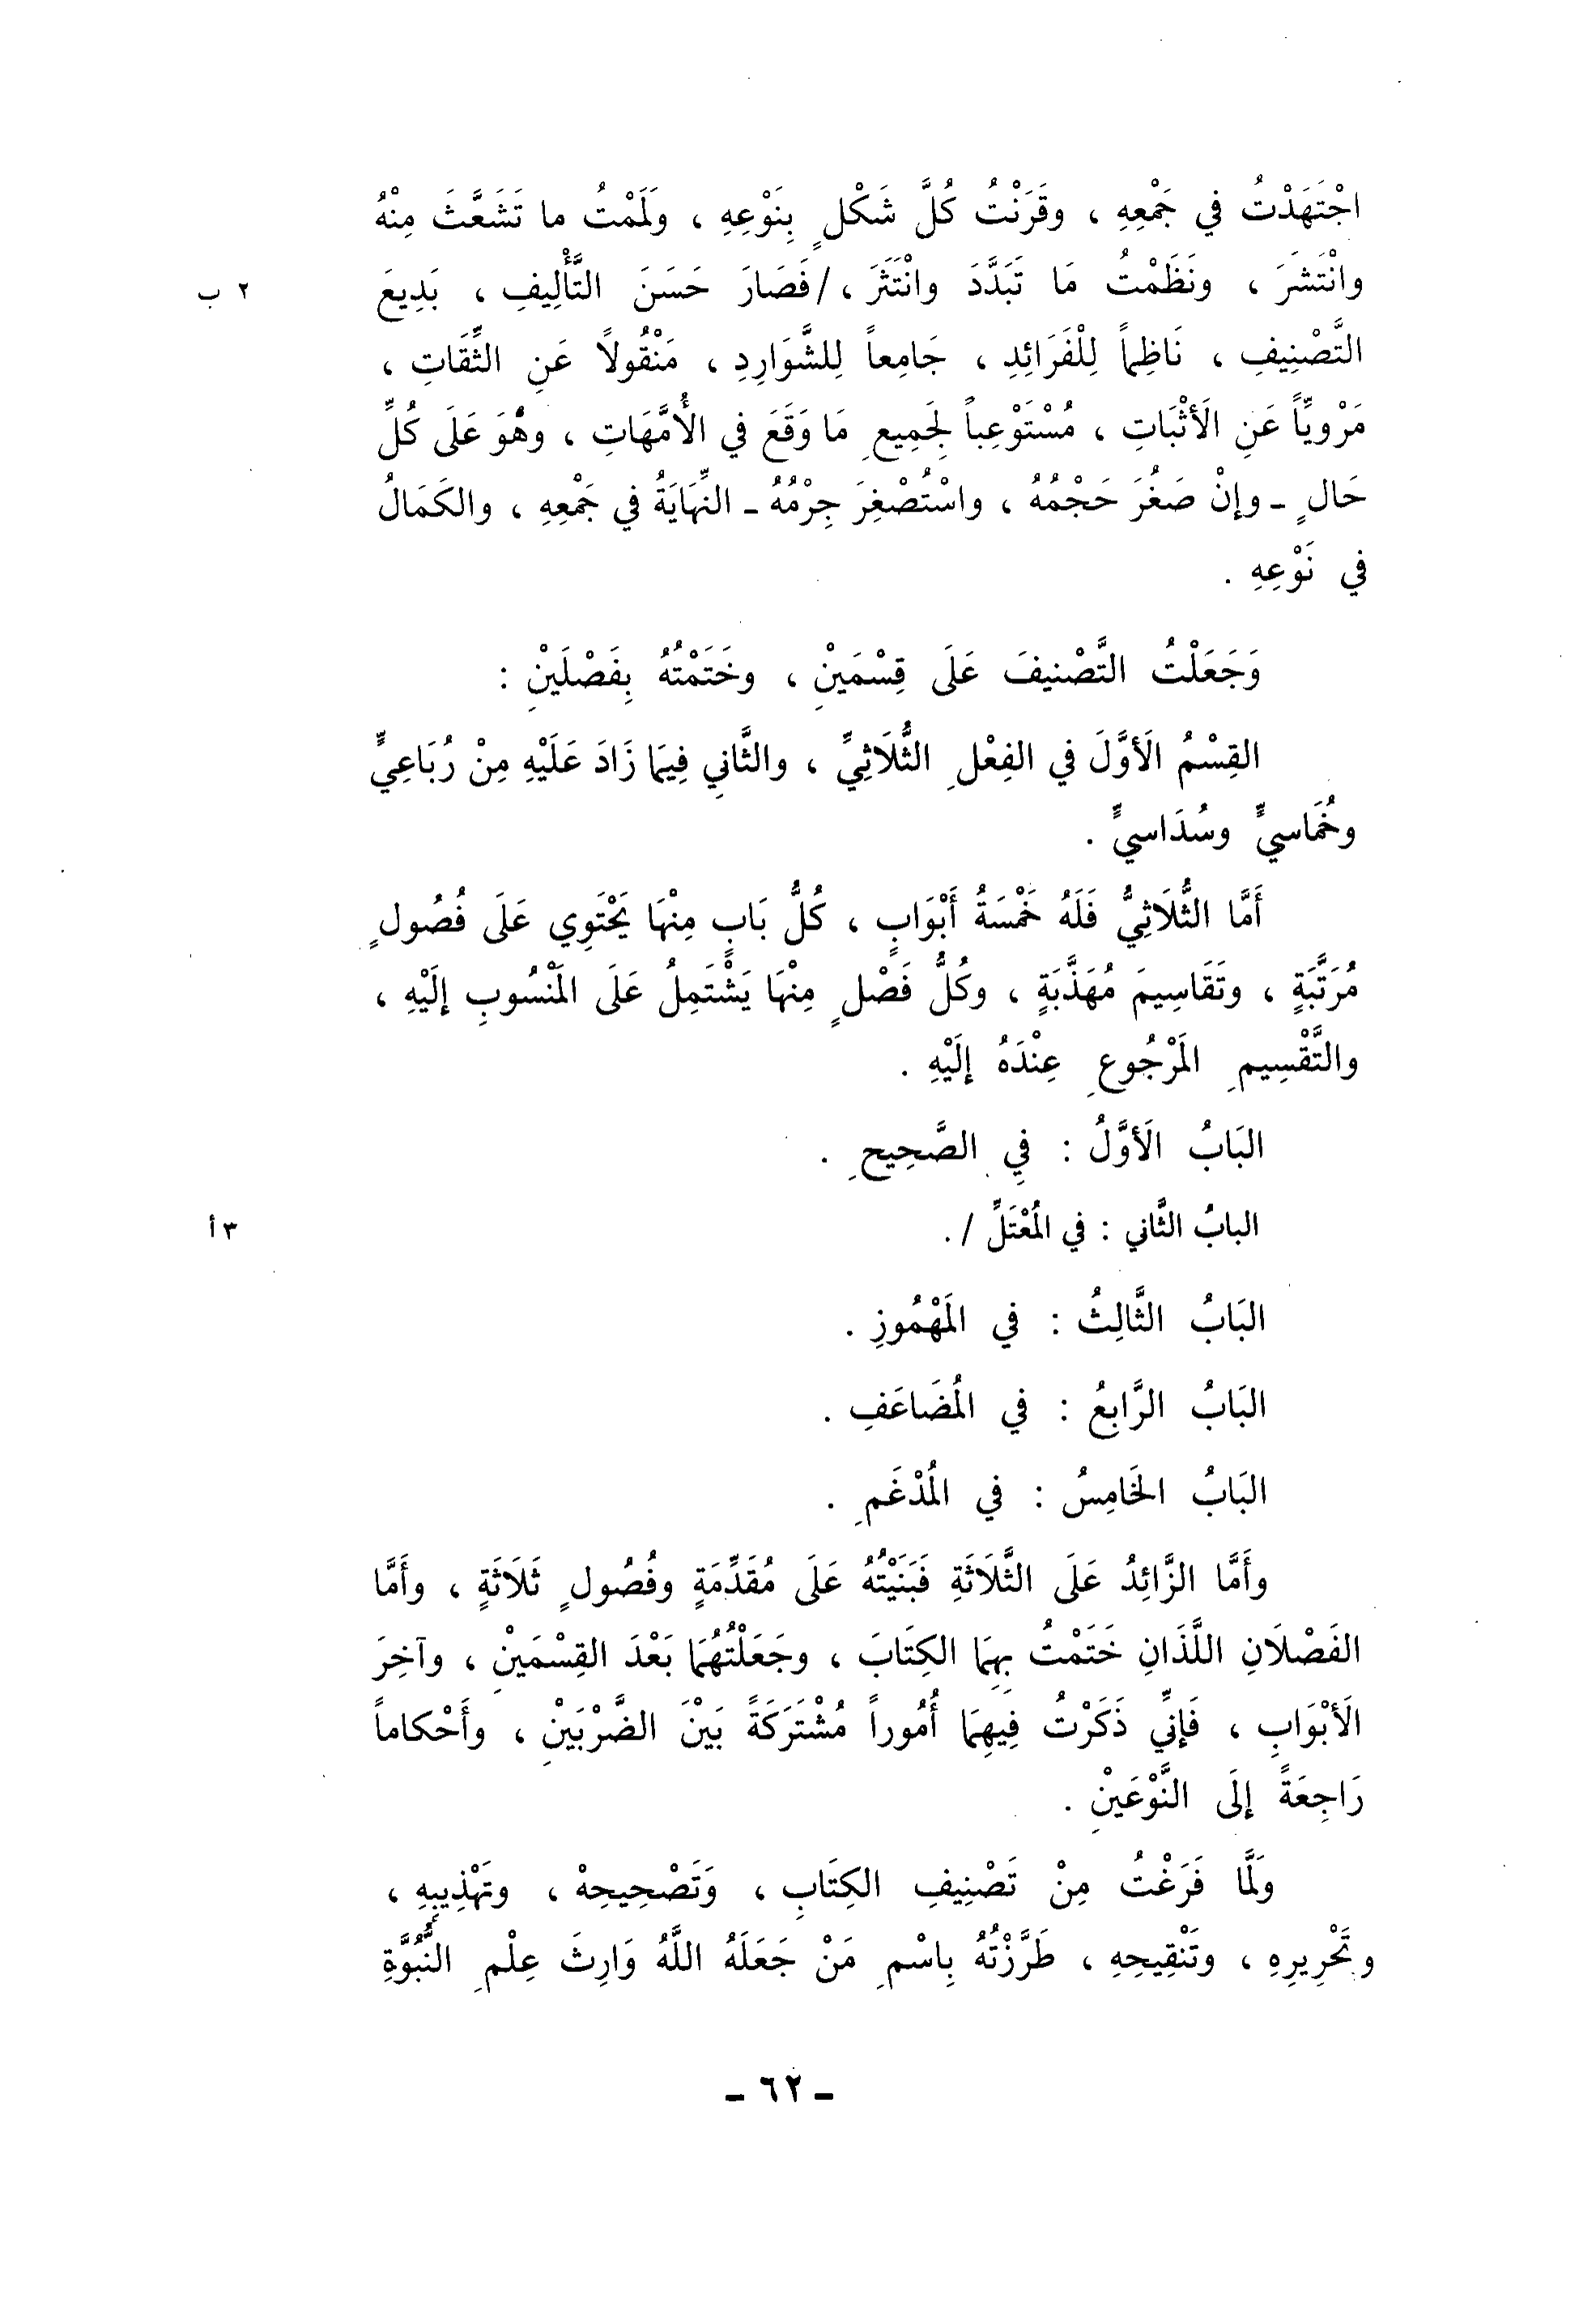 اجْتَهَدْتُ في جَمْعِهِ ، وقَرَنْتُ كُلَّ شَكْلٍ بِنَوْعِهِ ، ولَمَمْتُ ما تَشَعَّثَ مِنْهُ
وانْتَشَرَ ، ونَظَمْتُ مَا تَبَدَّدَ وانْتَثَرَ ، / فَصَارَ حَسَنَ التَّأْلِيفِ ، بَدِيعَ
٢ ب
التَّصْنِيفِ ، نَاظِماً لِلْفَرَائِدِ ، جَامِعاً لِلشَّوَارِدِ ، مَنْقُولاً عَنِ الثِّقَاتِ ،
مَرْوِيّاً عَنِ الَأثْبَاتِ ، مُسْتَوْعِباً لِجَمِيعِ مَا وَقَعَ في الأُمَّهَاتِ ، وهُوَ عَلَى كُلِّ
حَالٍ ـ وإنْ صَغُرَ حَجْمُهُ ، واسْتُصْغِرَ جِرْمُهُ ـ النِّهَايَةُ في جَمْعِهِ ، والكَمَالُ
في نَوْعِهِ .
وَجَعَلْتُ التَّصْنيفَ عَلَى قِسْمَيْنِ ، وخَتَمْتُهُ بِفَصْلَيْنِ :
القِسْمُ الَأوَّلَ في الفِعْلِ الثُّلَاثِيِّ ، والثَّانِي فِيمَا زَادَ عَلَيْهِ مِنْ رُبَاعِيٍّ
وخُمَاسيٍّ وسُدَاسيٍّ .
أَمَّا الثُّلَاثِيُّ فَلَهُ خَمْسَةُ أَبْوَابٍ ، كُلُّ بَابٍ مِنْهَا يَحْتَوِي عَلَى فُصُولٍ
مُرَتَّبَةٍ ، وتَقَاسِيمَ مُهَذَّبَةٍ ، وكُلُّ فَصْلٍ مِنْهَا يَشْتَمِلُ عَلَى المَنْسُوبِ إلَيْهِ ،
والتَّقْسِيمِ المَرْجُوعِ عِنْدَهُ إلَيْهِ .
البَابُ الَأوَّلُ : فِي الصَّحِيحِ .
البابُ الثَّاني : في المُعْتَلِّ / .
٣ أ
البَابُ الثَّالِثُ : في المَهْمُوزِ .
البَابُ الرَّابِعُ : في المُضَاعَفِ .
البَابُ الخَامِسُ : في المُدْغَمِ .
وأَمَّا الزَّائِدُ عَلَى الثَّلَاثَةِ فَبَنَيْتُهُ عَلَى مُقَدِّمَةٍ وفُصُولٍ ثَلَاثَةٍ ، وأَمَّا
الفَصْلَانِ اللَّذَانِ خَتَمْتُ بِهِمَا الكِتَابَ ، وجَعَلْتُهُمَا بَعْدَ القِسْمَيْنِ ، وآخِرَ
الَأبْوَابِ ، فَإنِّي ذَكَرْتُ فِيهِمَا أُمُوراً مُشْتَرَكَةً بَيْنَ الضَّرْبَيْنِ ، وأَحْكاماً
رَاجِعَةً إلَى النَّوْعَيْنِ .
وَلَمَّا فَرَغْتُ مِنْ تَصْنِيفِ الكِتَابِ ، وَتَصْحِيحِهْ ، وتَهْذِيبِهِ ،
وتَحْرِيرِهِ ، وتَنْقِيحِهِ ، طَرَّزْتُهُ بِاسْمِ مَنْ جَعَلَهُ اللَّهُ وَارِثَ عِلْمِ النُّبُوَّةِ
ـ ٦٢ ـ